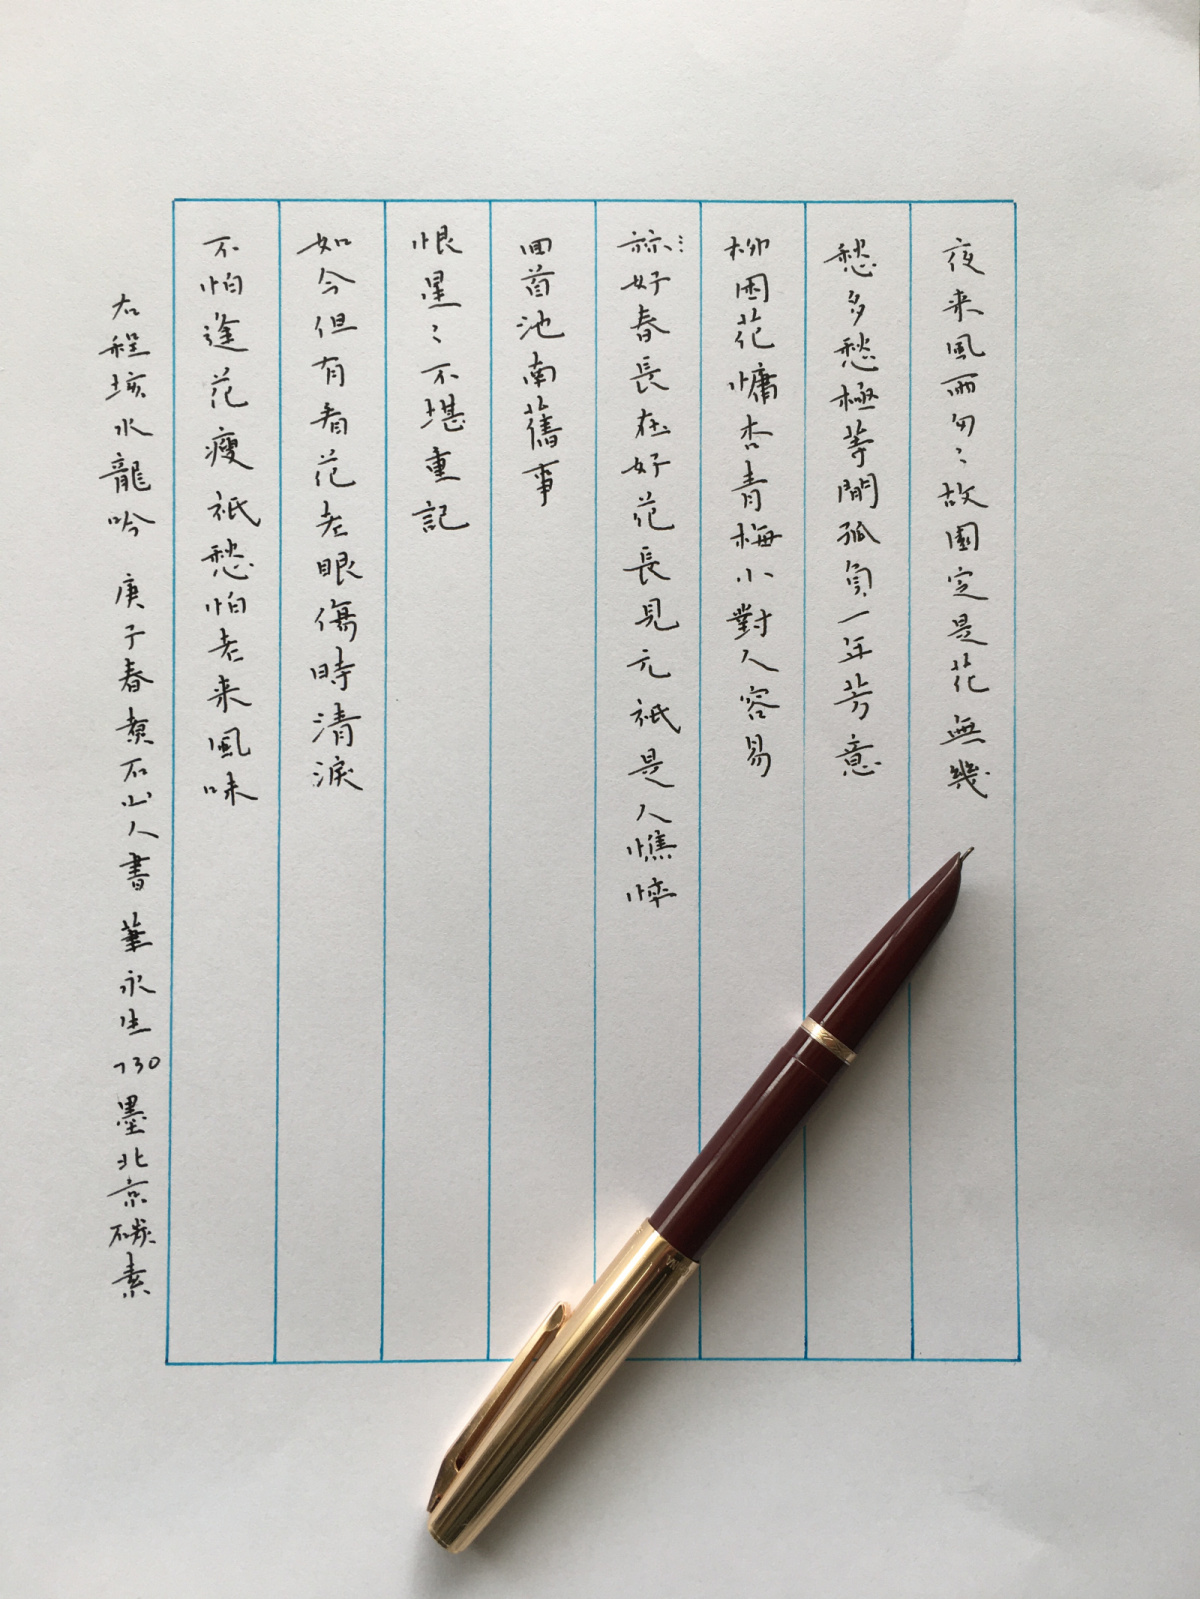 夜来風雨匆〻故園定是花無幾
愁多愁極等閒孤負一年芳意
柳困花慵杏青梅小對人容易
祘好春長在好花長見元祇是人憔悴
回首池南舊事
恨星〻不堪重記
如今但有看花老眼傷時清淚
不怕逢花瘦祇愁怕老来風味
右程垓水龍吟 庚子春煑石山人書 筆永生730 墨北京碳素